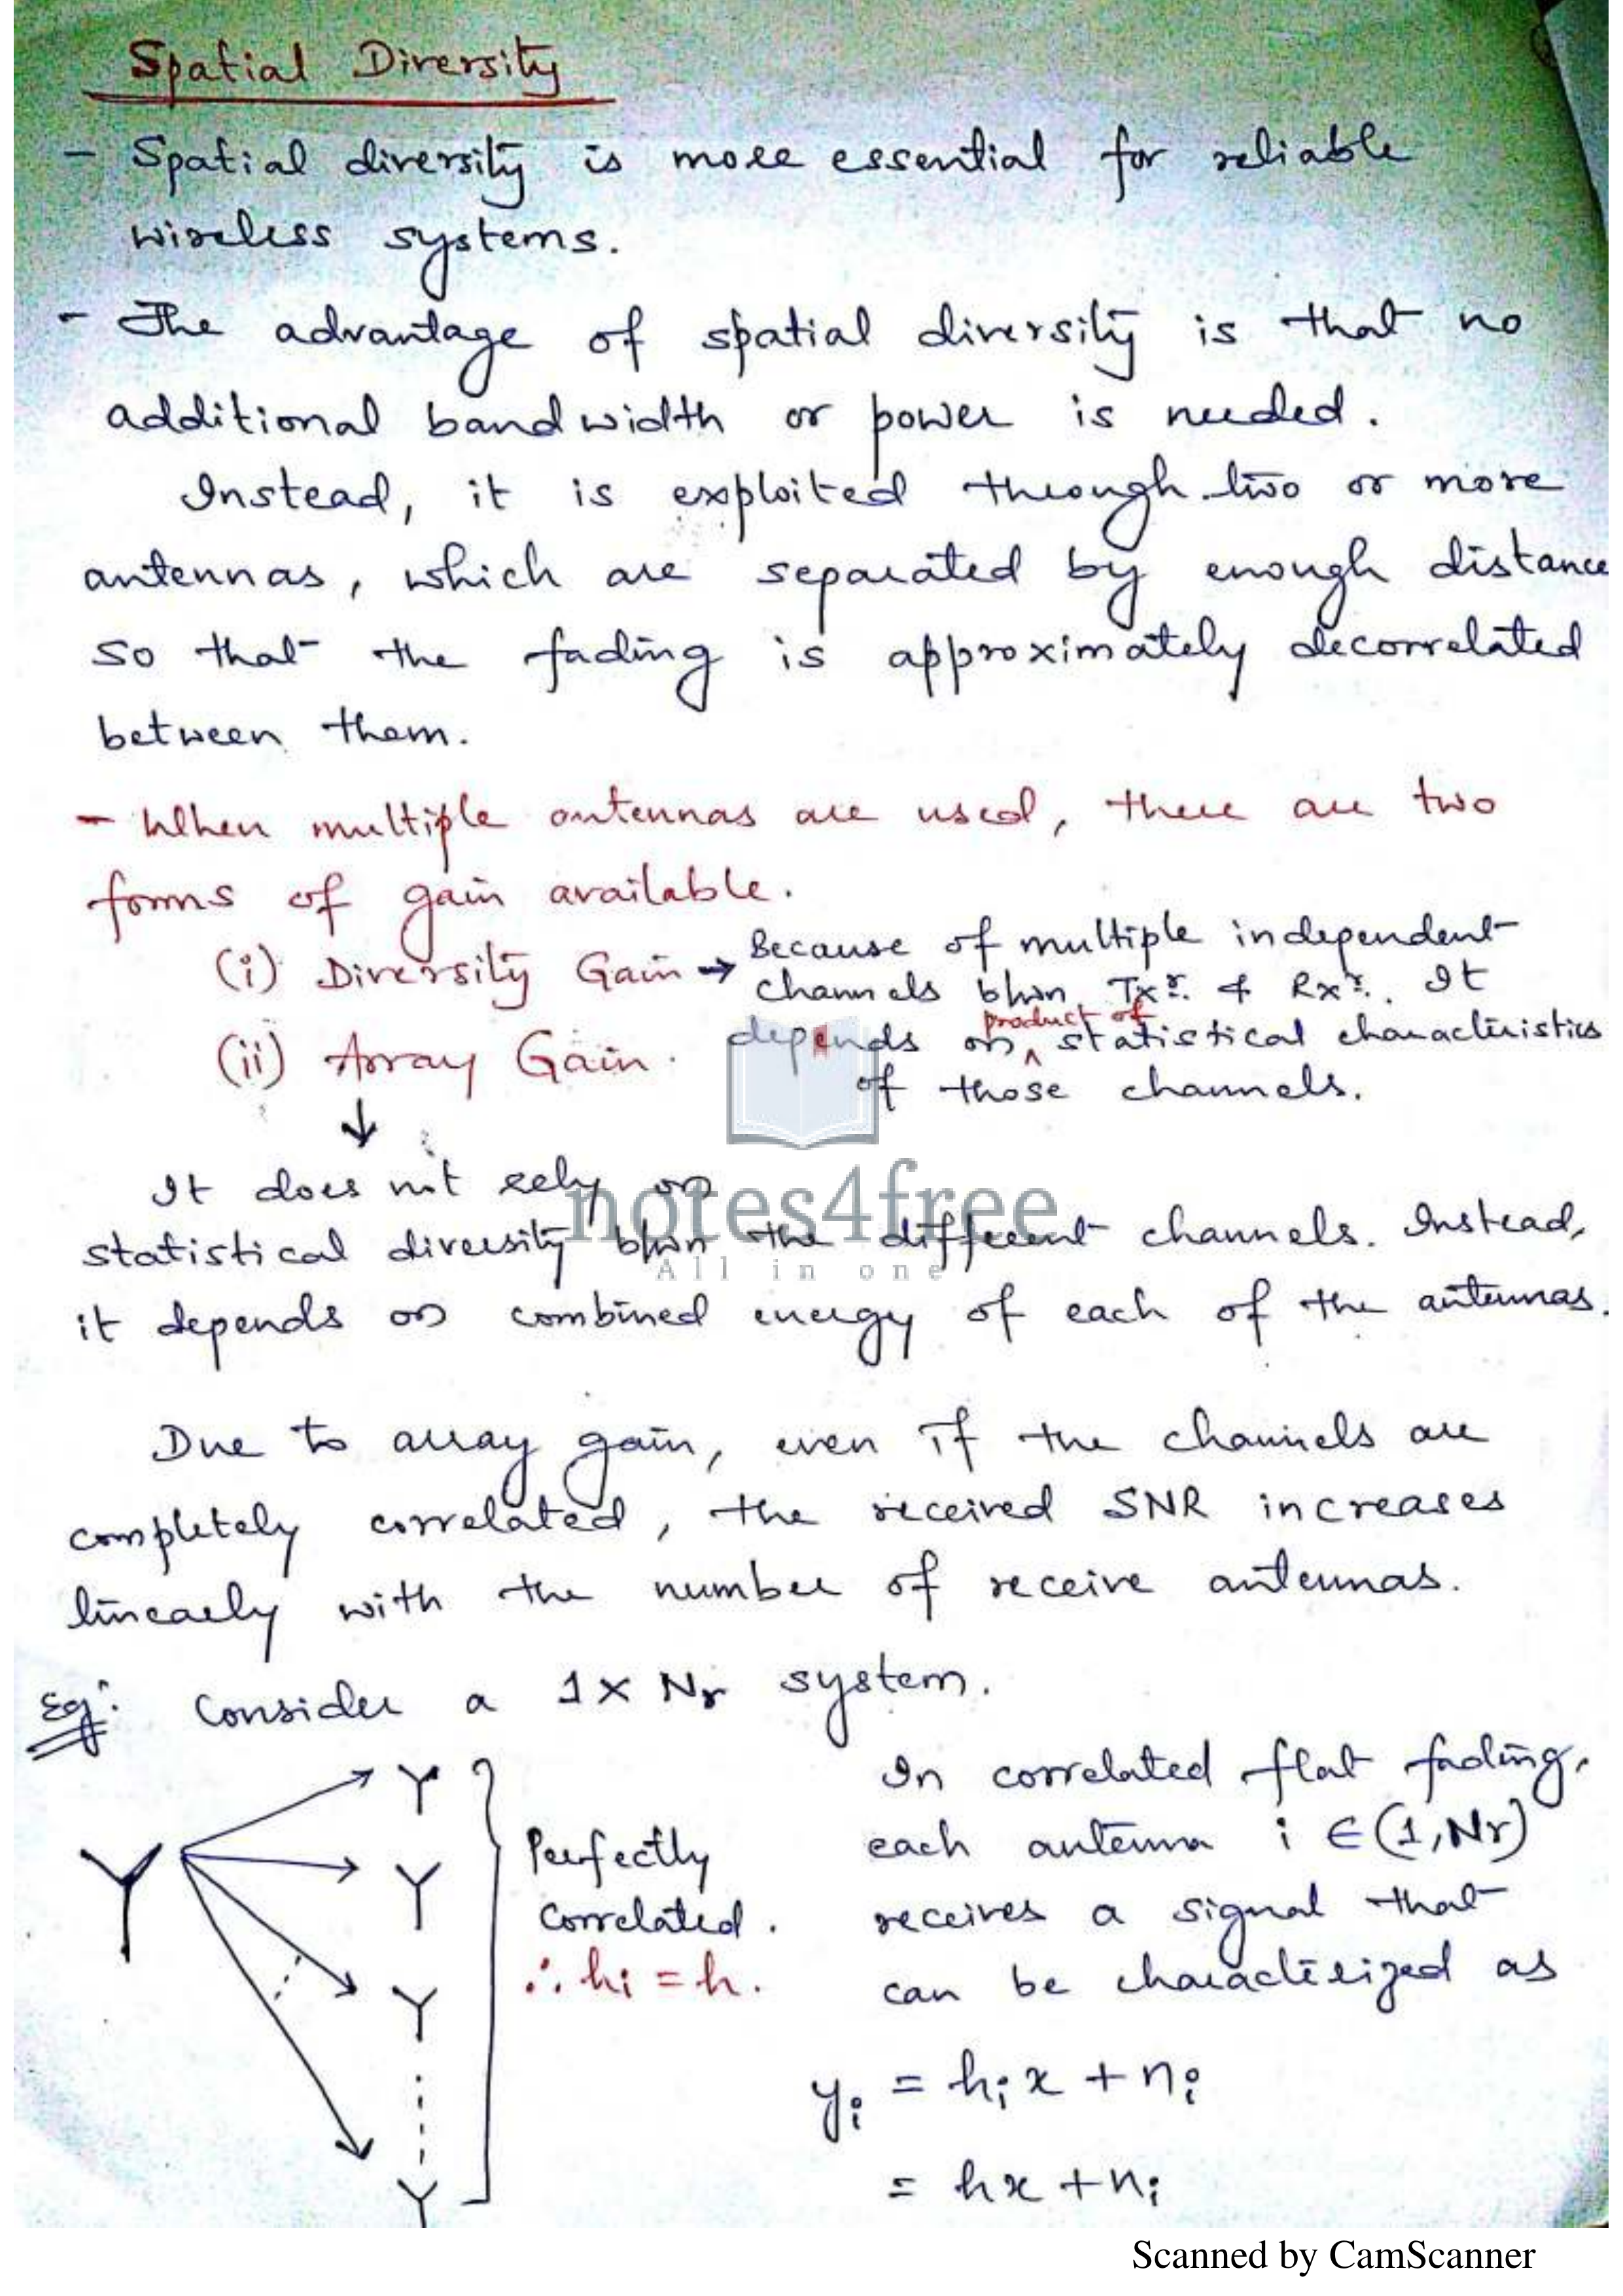 Spatial Diversity
- Spatial diversity is more essential for reliable
wireless systems.
- The advantage of spatial diversity is that no
additional bandwidth or power is needed.
Instead, it is exploited through two or more
antennas, which are separated by enough distance
so that the fading is approximately decorrelated
between them.
- When multiple antennas are used, there are two
forms of gain available.
(i) Diversity Gain → Because of multiple independent
channels btwn Txr. & Rxr. It
depends on product of statistical characteristics
of those channels.
(ii) Array Gain.
↓
It does not rely on
statistical diversity btwn the different channels. Instead,
it depends on combined energy of each of the antennas.
notes4free
All in one
Due to array gain, even if the channels are
completely correlated, the received SNR increases
linearly with the number of receive antennas.
Eg: Consider a 1 x Nr system.
Perfectly
correlated.
∴ hi = h.
In correlated flat fading,
each antenna i ∈ (1, Nr)
receives a signal that
can be characterized as
yi = hi x + ni
= hx + ni
Scanned by CamScanner